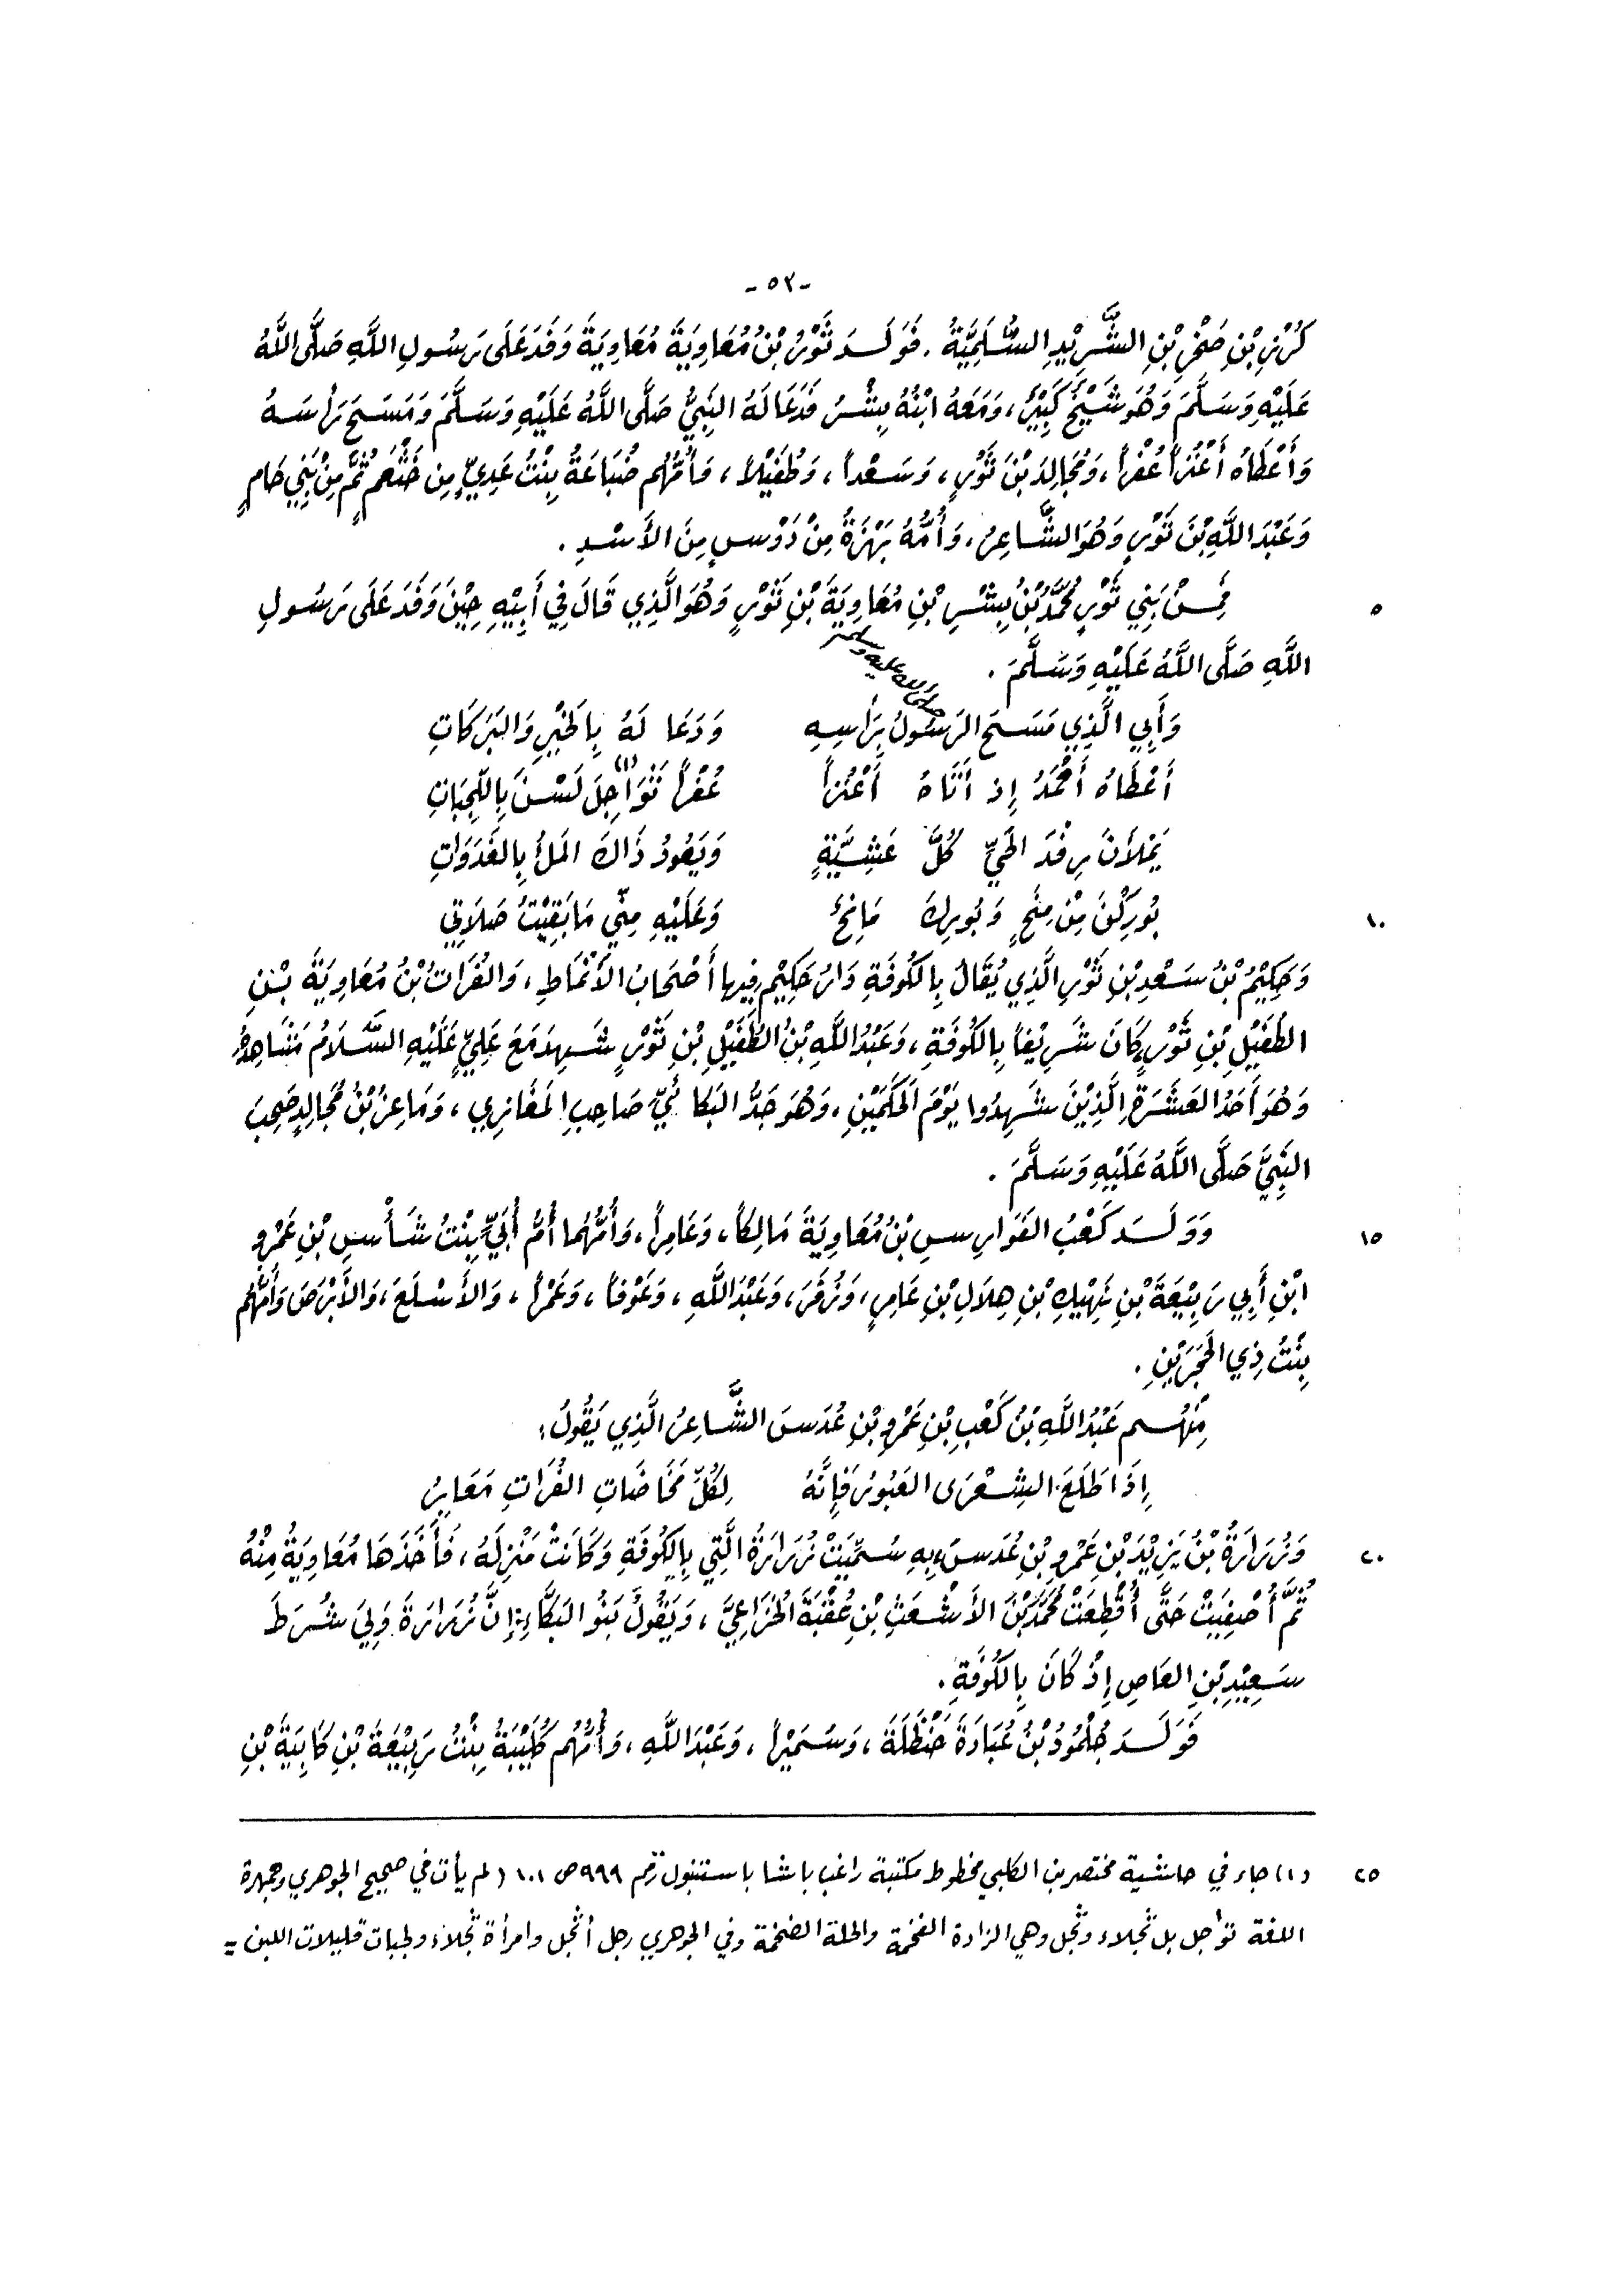 -٥٢-
كُرْزِ بْنِ صَخْرِ بْنِ الشَّرِيْدِ السُّلَمِيَّةُ. فَوَلَدَ ثَوْرُ بْنُ مُعَاوِيَةَ مُعَاوِيَةَ وَفَدَ عَلَى رَسُولِ اللَّهِ صَلَّى اللَّهُ
عَلَيْهِ وَسَلَّمَ وَهُوَ شَيْخٌ كَبِيْرٌ، وَمَعَهُ ابْنُهُ بِشْرُ فَدَعَا لَهُ النَّبِيُّ صَلَّى اللَّهُ عَلَيْهِ وَسَلَّمَ وَمَسَحَ رَأْسَهُ
وَأَعْطَاهُ أَعْنُزاً عُفْراً، وَمُجَالِدَ بْنَ ثَوْرٍ، وَسَعْداً، وَطُفَيْلاً، وَأُمُّهُم ضُبَاعَةُ بِنْتُ عَدِيٍّ مِن خَثْعَم ثُمَّ مِنْ بَنِي حَامٍ
وَعَبْدَ اللَّهِ بْنَ ثَوْرٍ وَهُوَ الشَّاعِرُ، وَأُمُّهُ بَهْزَةُ مِنْ دَوْسٍ مِنَ الأَسْدِ.
٥ فَمِنْ بَنِي ثَوْرٍ مُحَمَّدُ بْنُ بِشْرِ بْنِ مُعَاوِيَةَ بْنِ ثَوْرٍ وَهُوَ الَّذِي قَالَ فِي أَبِيْهِ حِيْنَ وَفَدَ عَلَى رَسُولِ
اللَّهِ صَلَّى اللَّهُ عَلَيْهِ وَسَلَّمَ.
صلى الله عليه وسلم
وَأَبِي الَّذِي مَسَحَ الرَسُولُ بِرَأْسِهِ وَدَعَا لَهُ بِالخَيْرِ وَالبَرَكَاتِ
أَعْطَاهُ أَحْمَدُ إِذ أَتَاهُ أَعْنُزاً عُفْراً ثَوَاجِلَ(١) لَسْنَ بِاللَّجَبَاتِ
يَمْلأَنَ رِفْدَ الحَيِّ كُلَّ عَشِيَّةٍ وَيَعُودُ ذَاكَ المَلْءُ بِالغَدَوَاتِ
١٠ بُورِكْنَ مِنْ مِنَحٍ وَبُورِكَ مَانِحٌ وَعَلَيْهِ مِنِّي مَا بَقِيْتُ صَلاَتِي
وَحَكِيْمُ بْنُ سَعْدِ بْنِ ثَوْرٍ الَّذِي يُقَالُ بِالكُوفَةِ دَارُ حَكِيْمٍ فِيها أَصْحَابُ الأَنْمَاطِ، وَالفُرَاتُ بْنُ مُعَاوِيَةَ بْنِ
الطُفَيْلِ بْنِ ثَوْرٍ كَانَ شَرِيْفاً بِالكُوفَةِ، وَعَبْدُ اللَّهِ بْنُ الطُفَيْلِ بْنِ ثَوْرٍ شَهِدَ مَعَ عَلِيٍّ عَلَيْهِ السَّلاَمُ مَشَاهِدَهُ
وَهُوَ أَحَدُ العَشَرَةِ الَّذِيْنَ شَهِدُوا يَوْمَ الحَكَمَيْنِ، وَهُوَ جَدُّ البَكائِيِّ صَاحِبِ المَغَازِي، وَمَاعِزُ بْنُ مُجَالِدٍ صَحِبَ
النَّبِيَّ صَلَّى اللَّهُ عَلَيْهِ وَسَلَّمَ.
١٥ وَوَلَدَ كَعْبُ الفَوَارِسِ بْنُ مُعَاوِيَةَ مَالِكاً، وَعَامِراً، وَأُمُّهُما أُمُّ أُبَيٍّ بِنْتُ شَأْسِ بْنِ عَمْرِو
ابْنِ أَبِي رَبِيْعَةَ بْنِ نَهِيْكِ بْنِ هِلاَلِ بْنِ عَامِرٍ، وَزُفَرَ، وَعَبْدَ اللَّهِ، وَعَوْفاً، وَعَمْراً، وَالأَسْلَعَ، وَالأَبْرَصَ وَأُمُّهُم
بِنْتُ ذِي الحَجَرَيْنِ.
مِنْهُم عَبْدُ اللَّهِ بْنُ كَعْبِ بْنِ عَمْرِو بْنِ عُدَسَ الشَّاعِرُ الَّذِي يَقُولُ:
إِذَا طَلَعَ الشِعْرَى العَبُورُ فَإِنَّهُ لِكُلِّ مَخَاضَاتِ الفُرَاتِ مَعَابِرُ
٢٠ وَزُرَارَةُ بْنُ يَزِيْدَ بْنِ عَمْرِو بْنِ عُدَسَ، بِهِ سُمِّيَتْ زُرَارَةُ الَّتِي بِالكُوفَةِ وَكَانَتْ مَنْزِلَهُ، فَأَخَذَهَا مُعَاوِيَةُ مِنْهُ
ثُمَّ أُصْفِيَتْ حَتَّى أُقْطِعَتْ مُحَمَّدَ بْنَ الأَشْعَثِ بْنِ عُقْبَةَ الخُزَاعِيَّ، وَيَقُولُ بَنُو البَكَّاءِ: إِنَّ زُرَارَةَ وَلِيَ شُرَطَ
سَعِيْدِ بْنِ العَاصِ إِذْ كَانَ بِالكُوفَةِ.
فَوَلَدَ جُلْمُودُ بْنُ عُبَادَةَ حَنْظَلَةَ، وَسُمَيْراً، وَعَبْدَ اللَّهِ، وَأُمُّهُم كُلَيْبَةُ بِنْتُ رَبِيْعَةَ بْنِ كَابِيَةَ بْنِ
٢٥ (١) جاء في حاشية مختصر بن الكلبي مخطوط مكتبة راغب باشا باستنبول رقم ٩٩٩ ص ١٠١ (لم يأت في صحيح الجوهري وجمهرة
اللغة ثواجل بل ثجلاء وثجل وهي المزادة الفخمة والحلة الضخمة وفي الجوهري رجل أثجل وامرأة ثجلاء ولجبات قليلات اللبن =